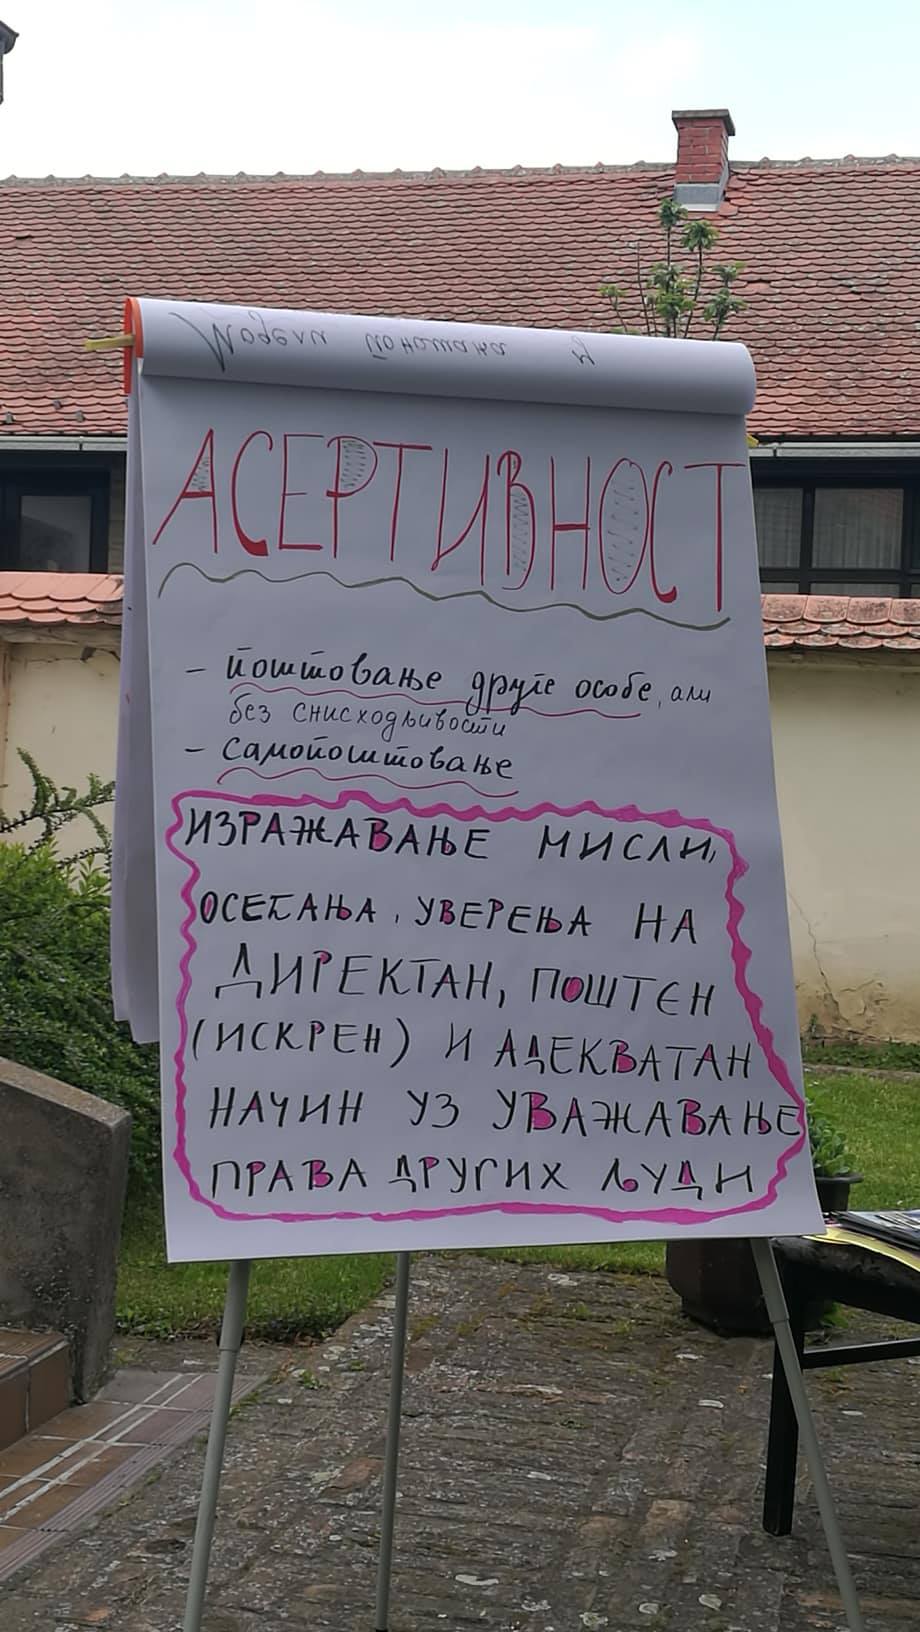 АСЕРТИВНОСТ
- поштовање друге особе, али
без снисходљивости
- самопоштовање
ИЗРАЖАВАЊЕ МИСЛИ,
ОСЕЋАЊА, УВЕРЕЊА НА
ДИРЕКТАН, ПОШТЕН
(ИСКРЕН) И АДЕКВАТАН
НАЧИН УЗ УВАЖАВАЊЕ
ПРАВА ДРУГИХ ЉУДИ